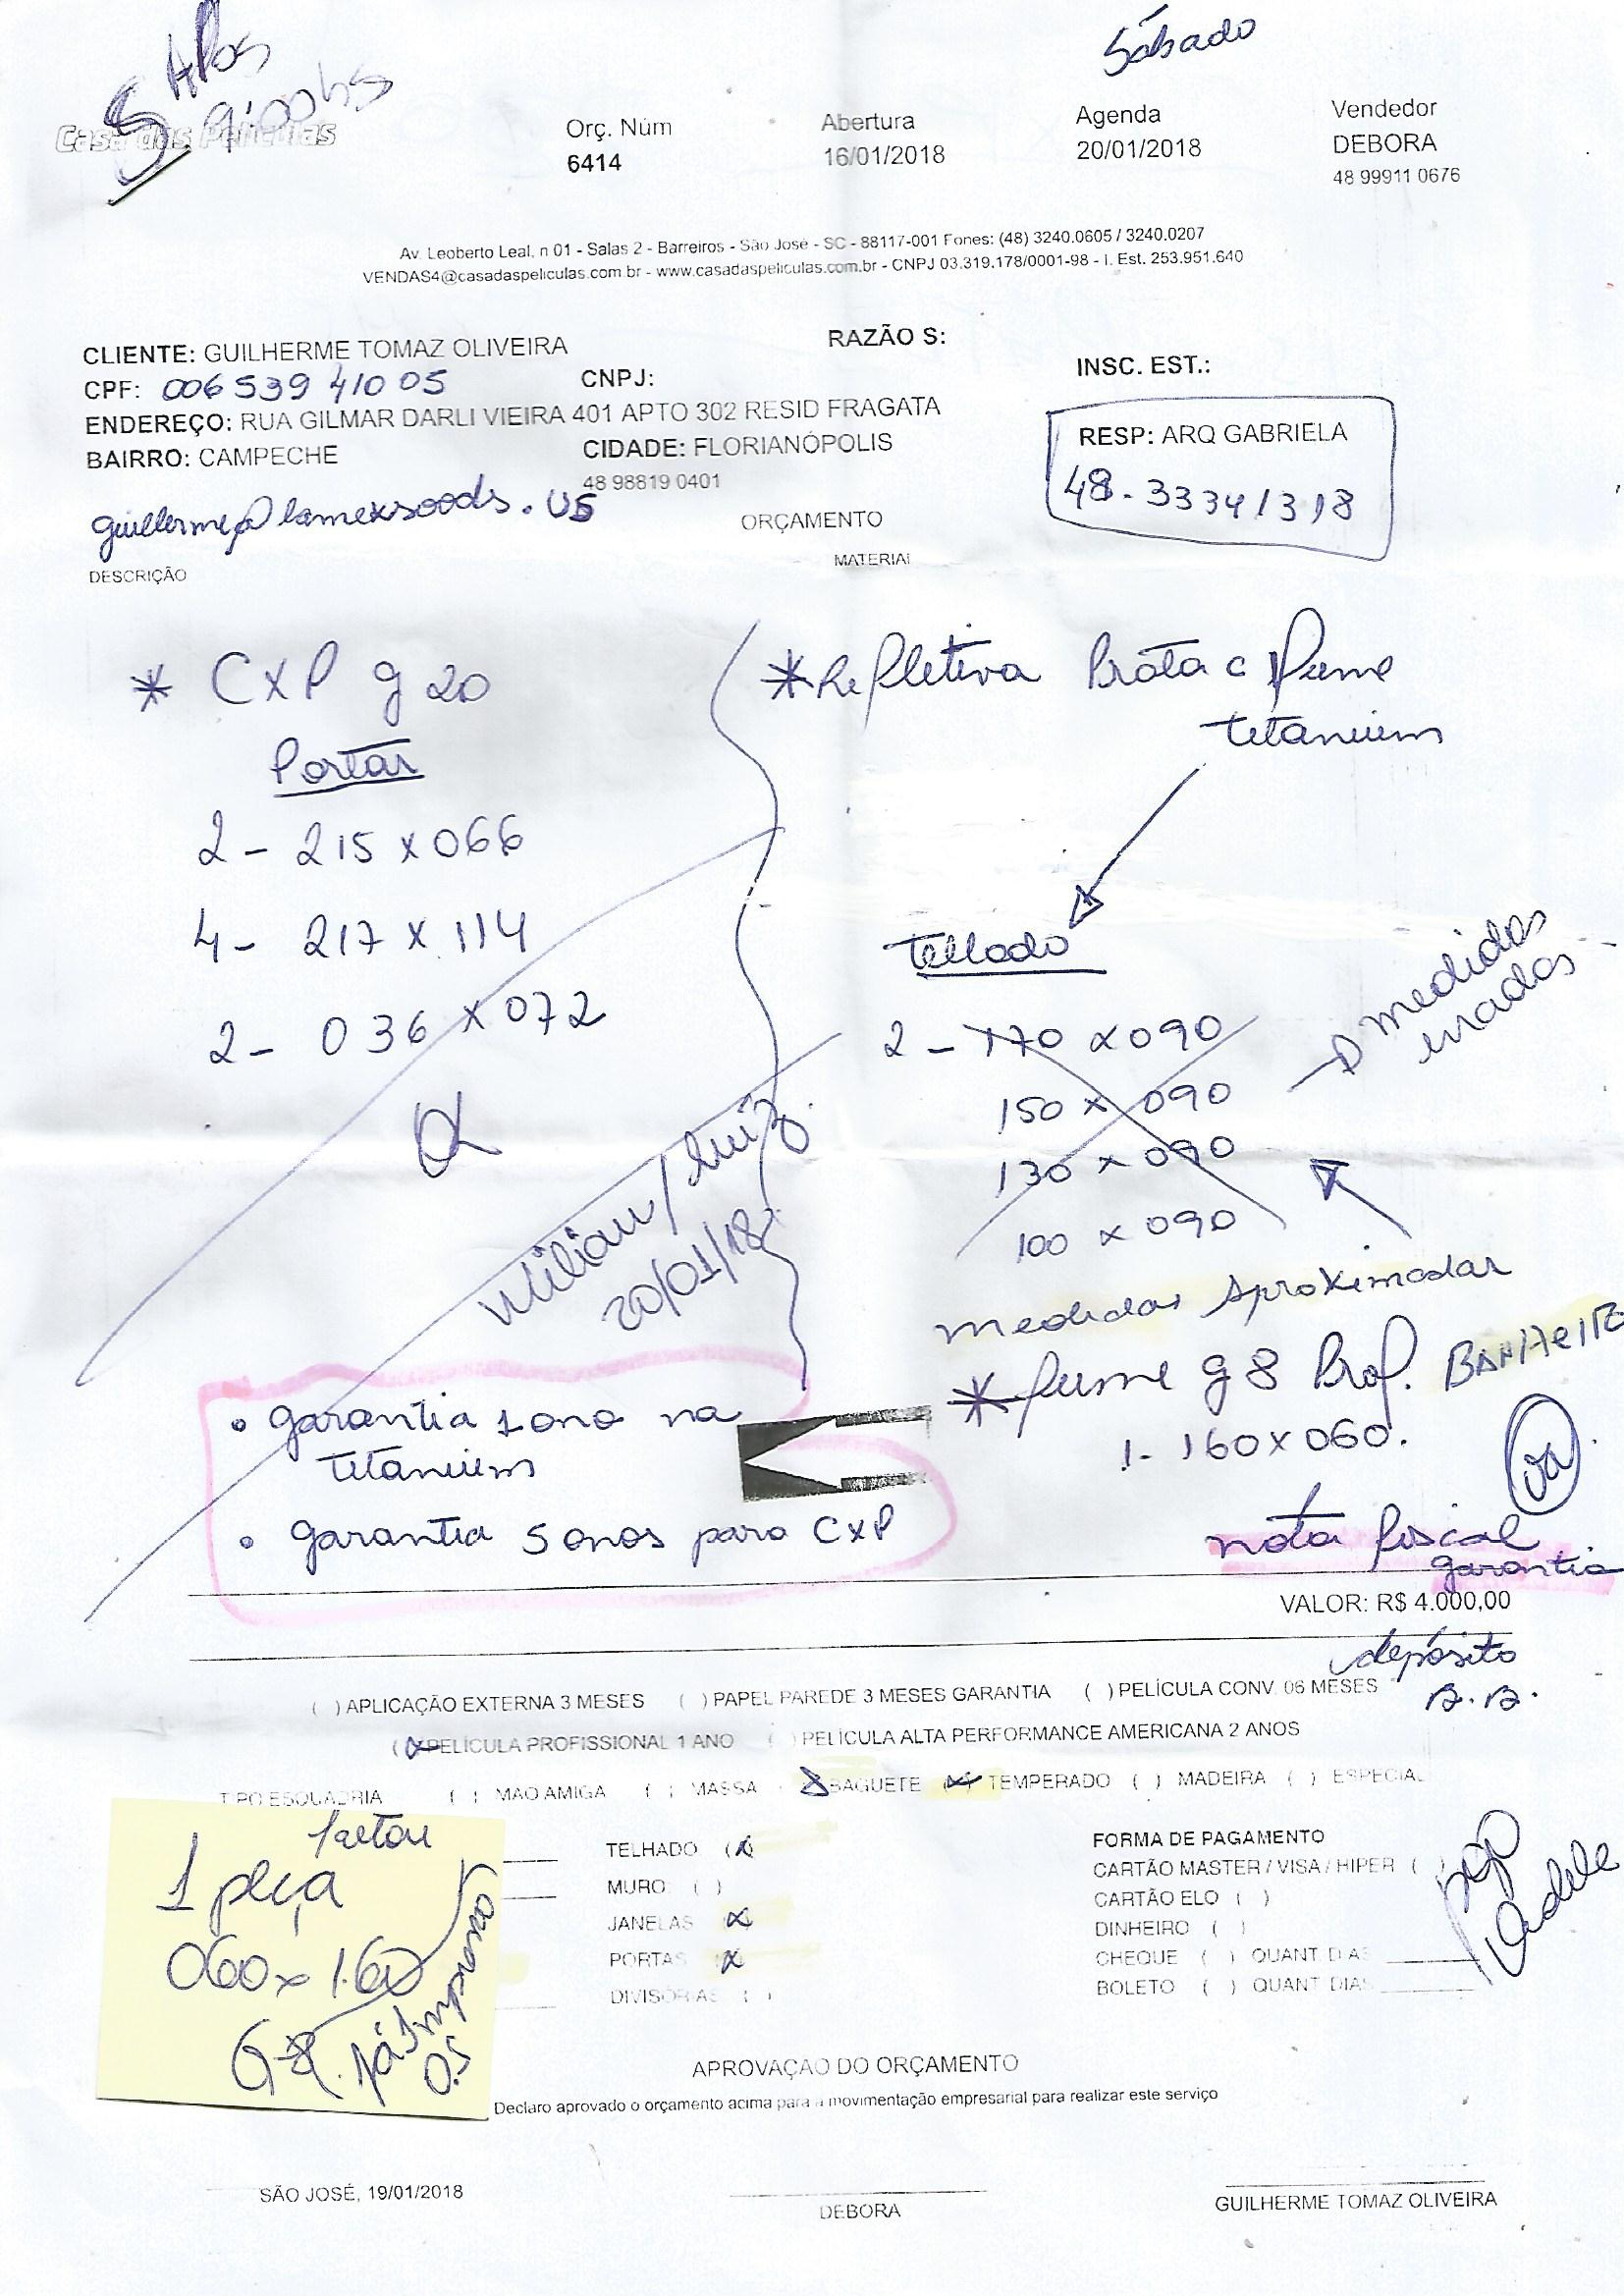 Sábado
APos
9:00hs
Casa das Películas
Orç. Núm
6414
Abertura
16/01/2018
Agenda
20/01/2018
Vendedor
DEBORA
48 99911 0676
Av. Leoberto Leal, n 01 - Salas 2 - Barreiros - São José - SC - 88117-001 Fones: (48) 3240.0605 / 3240.0207
VENDAS4@casadaspeliculas.com br - www.casadaspeliculas.com.br - CNPJ 03.319.178/0001-98 - I. Est. 253.951.640
CLIENTE: GUILHERME TOMAZ OLIVEIRA
RAZÃO S:
CPF: 006 539 410 05
CNPJ:
INSC. EST.:
ENDEREÇO: RUA GILMAR DARLI VIEIRA 401 APTO 302 RESID FRAGATA
BAIRRO: CAMPECHE
CIDADE: FLORIANÓPOLIS
48 98819 0401
RESP: ARQ GABRIELA
48-33341318
ORÇAMENTO
DESCRIÇÃO
MATERIAL
* CXP g 20
Portas
2 - 215 x 066
4 - 217 x 114
2 - 036 x 072
Wilian / Luiz
20/01/18
* Refletiva Prata c fume
titanium
Telhado
2 - 170 x 090
150 x 090
130 x 090
100 x 090
medidas
erradas
medidas Aproximadas
* fume g 8 Prof. BANHEIRO
1 - 160 x 060.
• garantia 1 ano na
titanium
• garantia 5 anos para CXP
nota fiscal
garantia
VALOR: R$ 4.000,00
depósito
B.B.
( ) APLICAÇÃO EXTERNA 3 MESES ( ) PAPEL PAREDE 3 MESES GARANTIA ( ) PELÍCULA CONV. 06 MESES
(X) PELÍCULA PROFISSIONAL 1 ANO ( ) PELÍCULA ALTA PERFORMANCE AMERICANA 2 ANOS
TIPO ESQUADRIA ( ) MAO AMIGA ( ) MASSA (X) BAGUETE (X) TEMPERADO ( ) MADEIRA ( ) ESPECIAL
faltou
1 peça
060 x 1.60
G-8.
TELHADO (X)
MURO ( )
JANELAS (X)
PORTAS (X)
DIVISÓRIAS ( )
FORMA DE PAGAMENTO
CARTÃO MASTER / VISA / HIPER ( )
CARTÃO ELO ( )
DINHEIRO ( )
CHEQUE ( ) QUANT. DIAS
BOLETO ( ) QUANT DIAS
APROVAÇÃO DO ORÇAMENTO
Declaro aprovado o orçamento acima para a movimentação empresarial para realizar este serviço
SÃO JOSÉ, 19/01/2018
DEBORA
GUILHERME TOMAZ OLIVEIRA